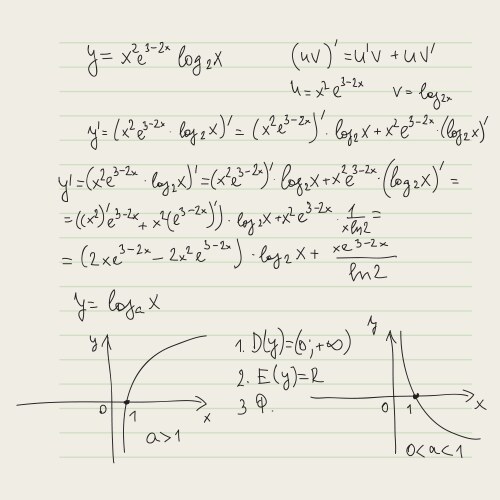 y = x²e³⁻²ˣ log₂x (uv)' = u'v + uv'
u = x²e³⁻²ˣ v = log₂ₓ
y' = (x²e³⁻²ˣ · log₂x)' = (x²e³⁻²ˣ)' · log₂x + x²e³⁻²ˣ · (log₂x)'
y' = (x²e³⁻²ˣ · log₂x)' = (x²e³⁻²ˣ)' · log₂x + x²e³⁻²ˣ · (log₂x)' =
= ((x²)'e³⁻²ˣ + x²(e³⁻²ˣ)') · log₂x + x²e³⁻²ˣ · 1/(x ln2) =
= (2xe³⁻²ˣ − 2x²e³⁻²ˣ) · log₂x + xe³⁻²ˣ/ln2
y = logₐ x
y
0
1
x
a > 1
1. D(y) = (0; +∞)
2. E(y) = R
y
0
1
x
0 < a < 1